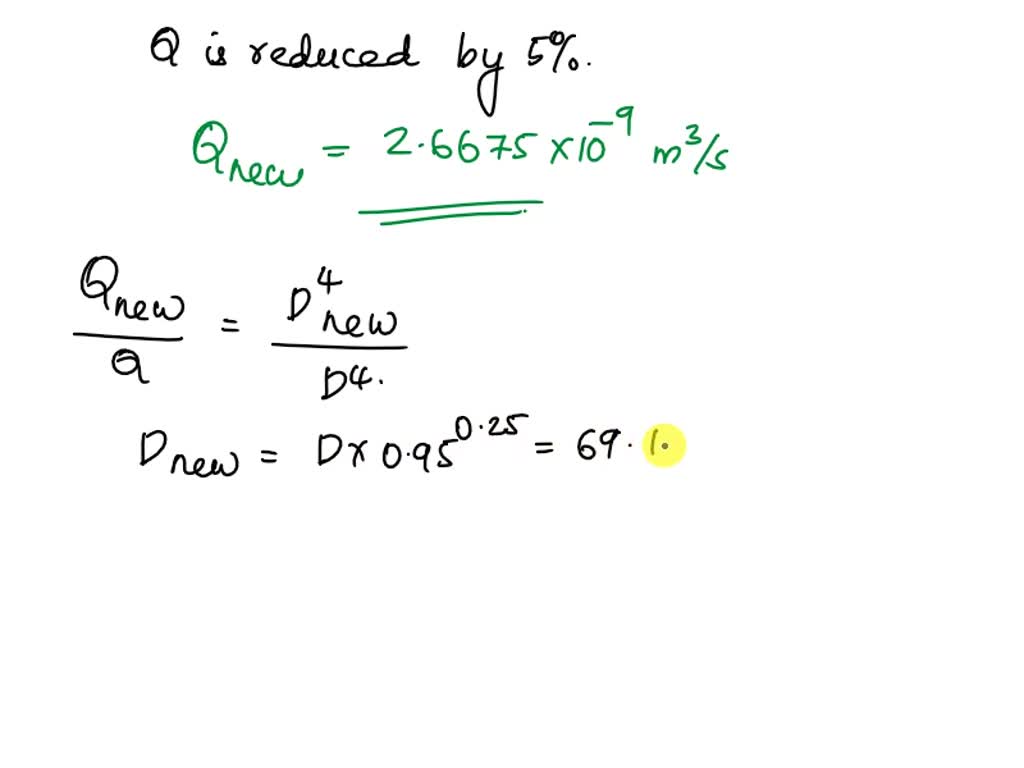 Q is reduced by 5%.
Qnew = 2.6675 × 10⁻⁹ m³/s
Qnew / Q = D⁴new / D⁴.
Dnew = D × 0.95^0.25 = 69.1